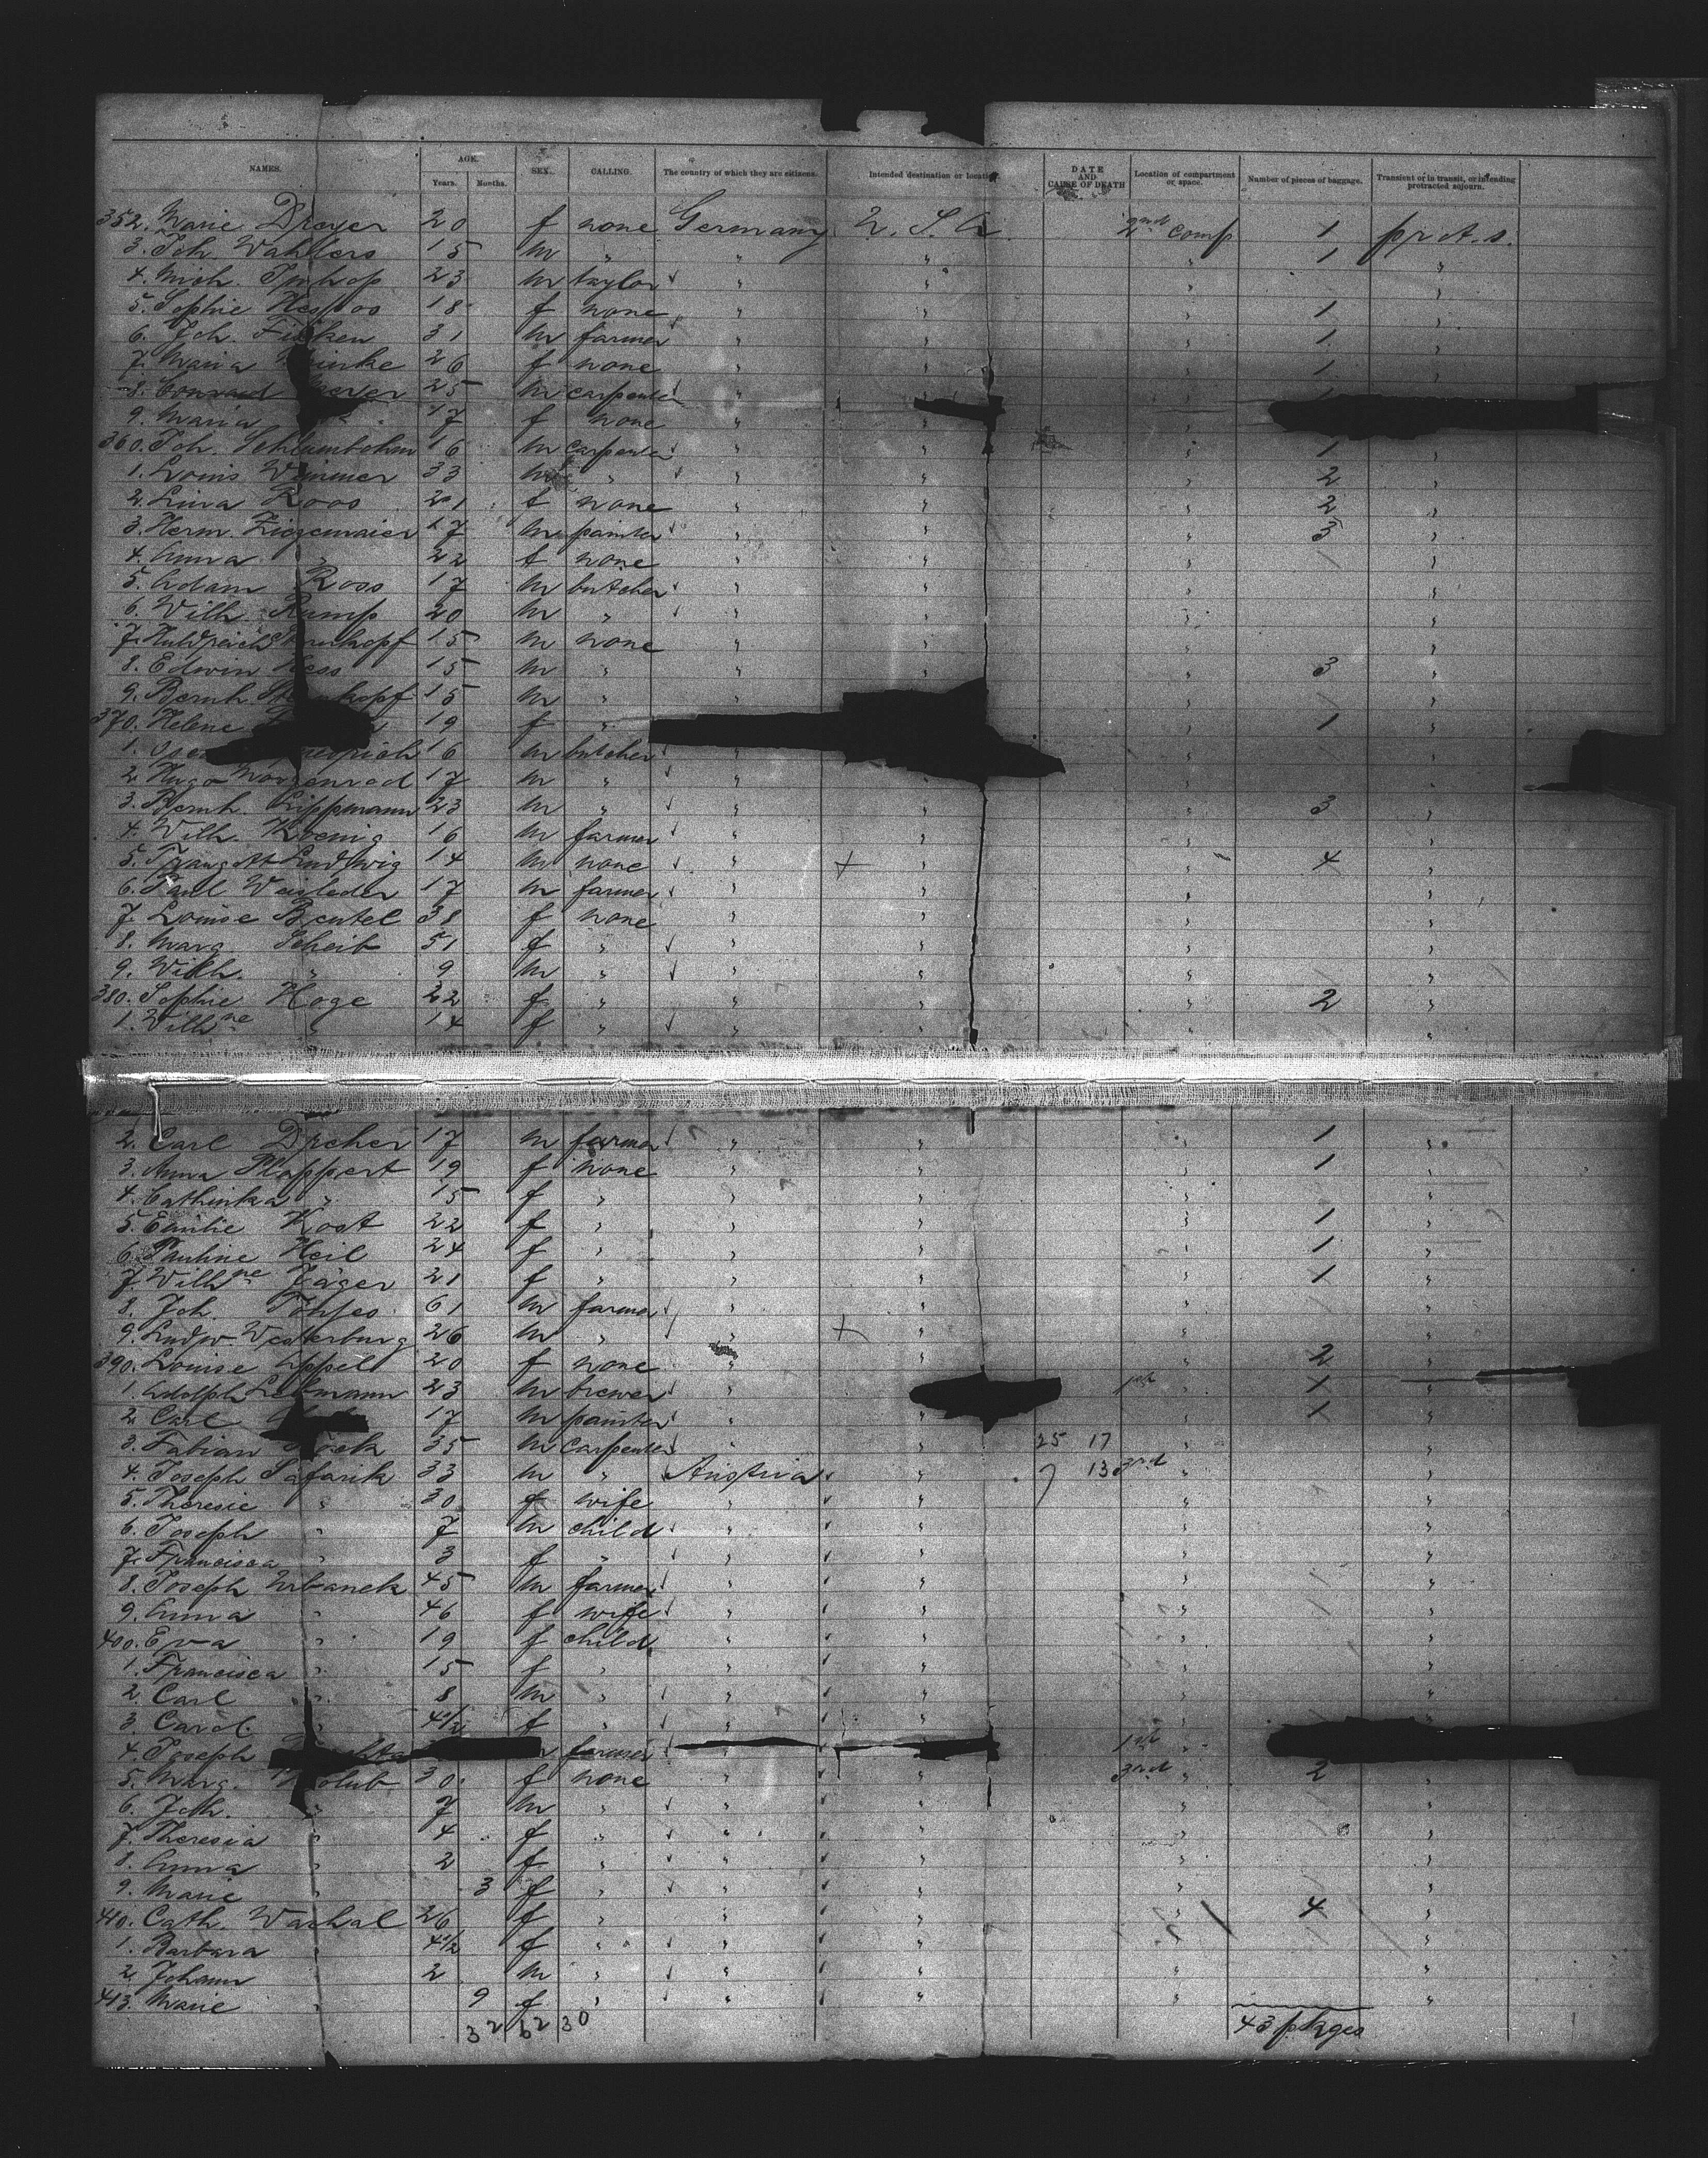 NAMES. AGE. SEX. CALLING. The country of which they are citizens. Intended destination or location DATE AND CAUSE OF DEATH Location of compartment or space. Number of pieces of baggage. Transient or in transit, or intending protracted sojourn.
Years. Months.
352. Marie Dreyer 20 f none Germany U. S. A. 2nd comp 1 pr. A. s.
3. Joh. Wahlers 15 m " " " " 1 "
4. Mich. 23 m taylor " " " "
5. Sophie 18 f none " " " 1 "
6. Joh. Ficken 31 m farmer " " " 1 "
7. Maria 26 f none " " " 1 "
8. Conrad 25 m carpenter " "
9. Maria 17 f none " " "
360. Joh. Schlumbohm 16 m carpenter " " " 1 "
1. Louis Wimmer 33 m " " " " 2 "
2. Lina Roos 21 f none " " " 2 "
3. Herm. Ziegemaier 17 m painter " " " 3 "
4. Anna " 22 f none " " " "
5. Adam Ross 17 m butcher " " " "
6. Wilh. Kump 20 m " " " " "
7. 15 m none " " " "
8. Edwin Hess 15 m " " " " 3 "
9. Bernh. 15 m " " " "
370. Helene 19 f " " 1 "
1. 16 m butcher " "
2. Hugo Morgenrod 17 m " " " " "
3. Bernh. Lippmann 23 m " " " " 3 "
4. Wilh. Koenig 16 m farmer " " " "
5. Traugott Ludwig 14 m none " " " 4 "
6. Paul Weisleder 17 m farmer " " " "
7. Louise Beutel 38 f none " " " "
8. Marg. Scheib 51 f " " " " "
9. Wilh. " 9 m " " " " "
380. Sophie Hoge 22 f " " " " 2 "
1. Wilhne " 14 f " " " " "
2. Carl Dreher 17 m farmer " " " 1 "
3. Anna Plappert 19 f none " " " 1 "
4. Cathinka " 15 f " " " " "
5. Emilie Kost 22 f " " " " 1 "
6. Pauline Heil 24 f " " " " 1 "
7. Wilhne Jäger 21 f " " " " 1 "
8. Joh. 61 m farmer " " " "
9. Ludw. Westerburg 26 m " " " " "
390. Louise Appel 20 f none " " " 2 "
1. Adolph Lehmann 23 m brewer " 1st " 1 "
2. Carl 17 m painter " " " 1 "
3. Fabian 35 m carpenter " " 25 17 " "
4. Joseph Safarik 33 m " Austria " 7 13 3rd " "
5. Theresie " 30 f wife " " " "
6. Joseph " 7 m child " " " "
7. Francisca " 3 f " " " " "
8. Joseph Urbanek 45 m farmer " " " "
9. Anna " 46 f wife " " " "
400. Eva " 19 f child " " " "
1. Francisca " 15 f " " " " "
2. Carl " 8 m " " " " "
3. Carol. " 4 1/2 f " " " " "
4. Joseph farmer 1st "
5. Marg. Holub 30 f none " " 3rd " 2 "
6. Joh. " 7 m " " " " "
7. Theresia " 4 f " " " " "
8. Anna " 2 f " " " " "
9. Marie " 3 f " " " " "
410. Cath. Wachal 26 f " " " " 4 "
1. Barbara " 4 1/2 f " " " " "
2. Johann " 2 m " " " " "
413. Marie " 9 f " " " " "
32 62 30 43 pkges